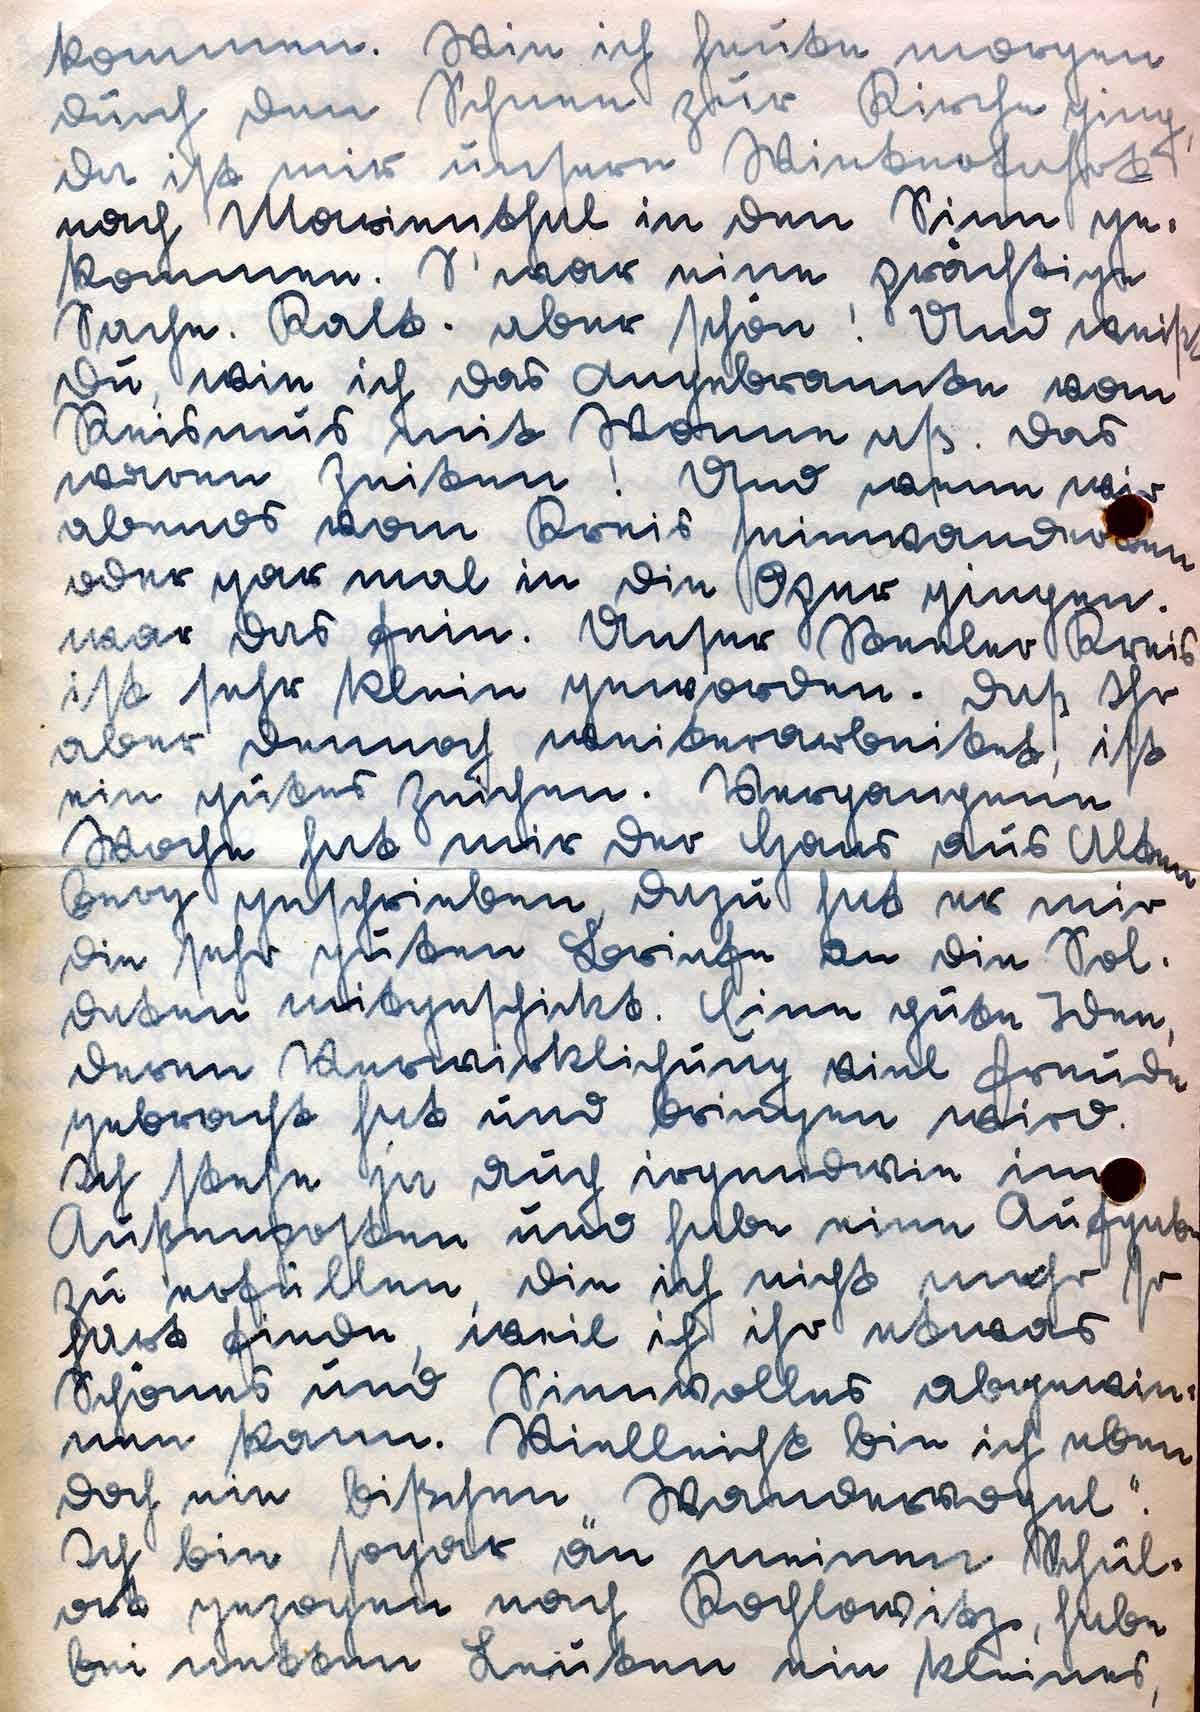 kommen. Wie ich heute morgen
durch den Schnee zur Kirche ging,
da ist mir unsere Winterfahrt
nach Marienthal in den Sinn ge-
kommen. S' war eine prächtige
Sache. Kalt. aber schön! Und weißt
Du, wie ich das Angebrannte vom
Reismus mit Wonne aß. Das
waren Zeiten! Und wenn wir
abends vom Kreis heimwanderten
oder gar mal in die Oper gingen.
war das fein. Unser Kreis
ist sehr klein geworden. Daß Ihr
aber dennoch weiterarbeitet, ist
ein gutes Zeichen. Vergangene
Woche hat mir der Hans aus Alten
berg geschrieben, dazu hat er mir
die sehr guten Briefe an die Sol-
daten mitgeschickt. Eine gute Idee,
deren Verwirklichung viel Freude
gebracht hat und bringen wird.
Ich stehe ja auch irgendwie im
Außenposten und habe eine Aufgabe
zu erfüllen, die ich nicht mehr so
hart finde, weil ich ihr etwas
Schönes und Sinnvolles abgewin-
nen kann. Vielleicht bin ich eben
doch ein bißchen „Wandervogel".
Ich bin sogar an meinen Schul-
ort gezogen nach Kochlowitz, habe
bei netten Leuten ein kleines,